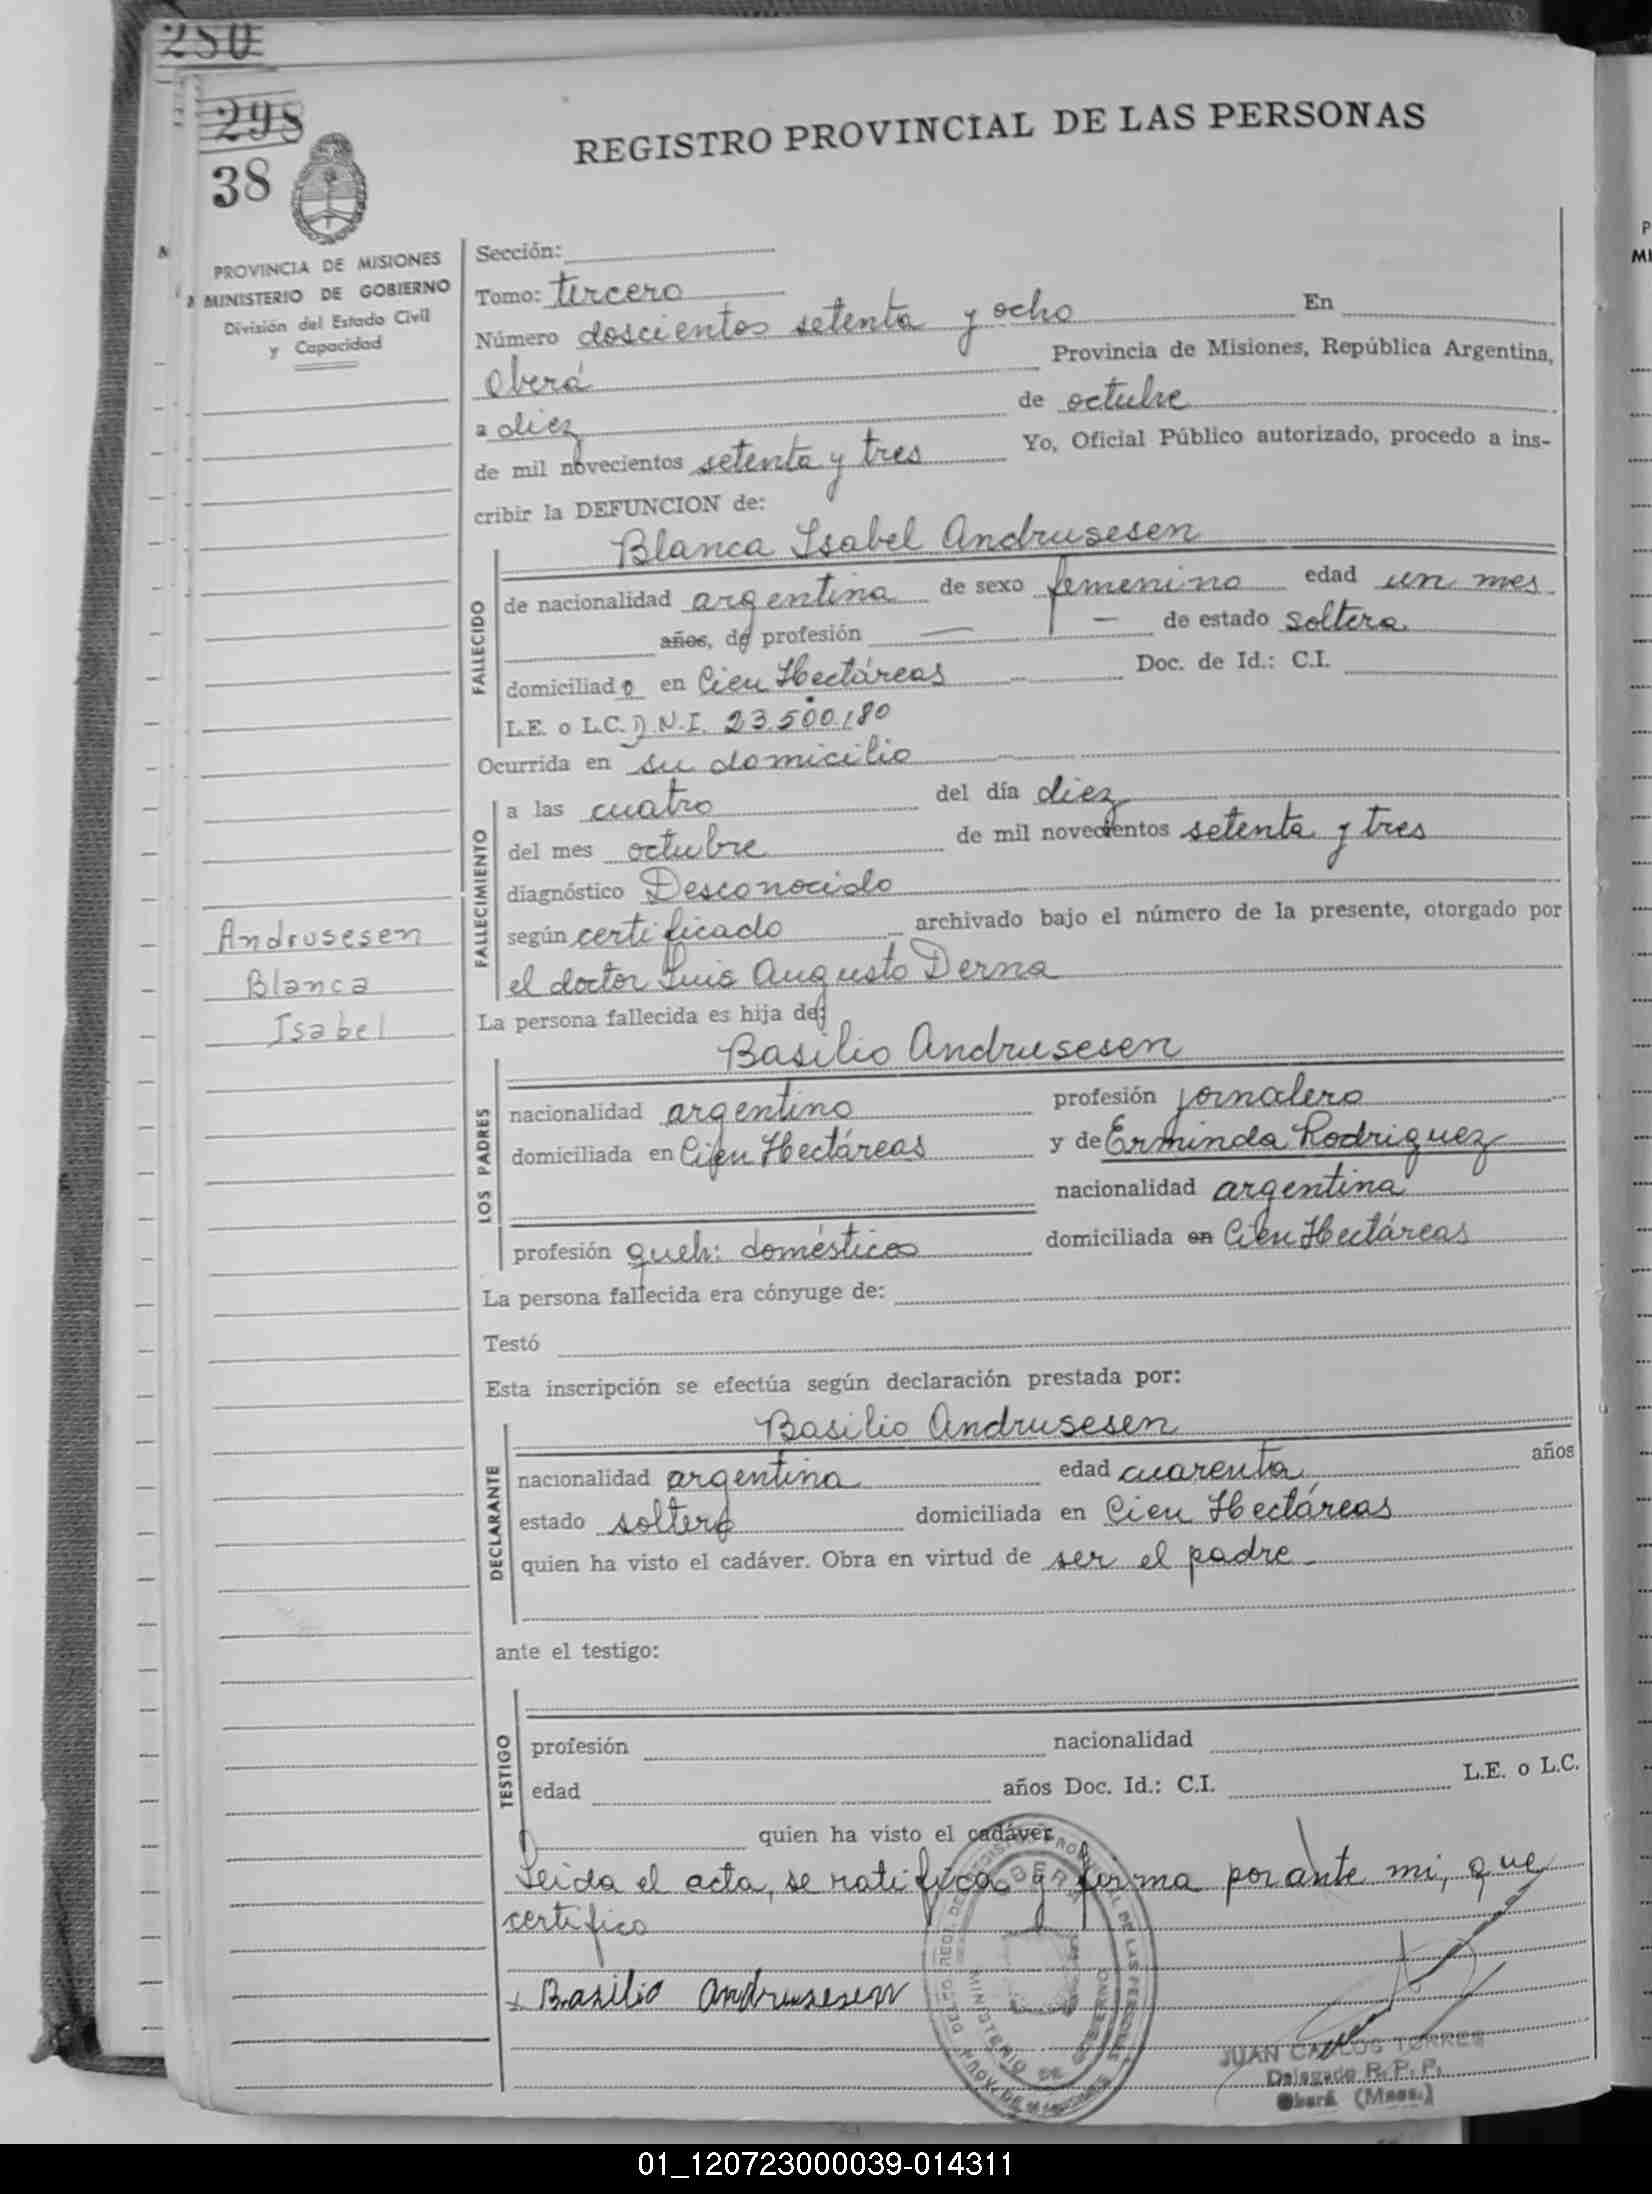 280
298
38
REGISTRO PROVINCIAL DE LAS PERSONAS
PROVINCIA DE MISIONES
MINISTERIO DE GOBIERNO
División del Estado Civil
y Capacidad
Sección:
Tomo: tercero
Número doscientos setenta y ocho En
Oberá Provincia de Misiones, República Argentina,
a diez de octubre
de mil novecientos setenta y tres Yo, Oficial Público autorizado, procedo a ins-
cribir la DEFUNCION de:
Blanca Isabel Andrusesen
FALLECIDO
de nacionalidad argentina de sexo femenino edad un mes
años, de profesión — — de estado soltera
domiciliado en Cien Hectáreas Doc. de Id.: C.I.
L.E. o L.C. D.N.I. 23.500.180
Ocurrida en su domicilio
FALLECIMIENTO
a las cuatro del día diez
del mes octubre de mil novecientos setenta y tres
diagnóstico Desconocido
según certificado archivado bajo el número de la presente, otorgado por
el doctor Luis Augusto Derna
Andrusesen
Blanca
Isabel
La persona fallecida es hija de:
Basilio Andrusesen
LOS PADRES
nacionalidad argentino profesión jornalero
domiciliada en Cien Hectáreas y de Erminda Rodriguez
nacionalidad argentina
profesión queh: domésticos domiciliada en Cien Hectáreas
La persona fallecida era cónyuge de:
Testó
Esta inscripción se efectúa según declaración prestada por:
Basilio Andrusesen
DECLARANTE
nacionalidad argentina edad cuarenta años
estado soltero domiciliada en Cien Hectáreas
quien ha visto el cadáver. Obra en virtud de ser el padre
ante el testigo:
TESTIGO
profesión nacionalidad
edad años Doc. Id.: C.I. L.E. o L.C.
quien ha visto el cadáver
Leida el acta, se ratifica y firma por ante mi, que
certifico
Basilio Andrusesen
MINISTERIO DE GOBIERNO
JUAN CARLOS TORRES
Delegado R. P. P.
Oberá (Mnes.)
01_120723000039-014311